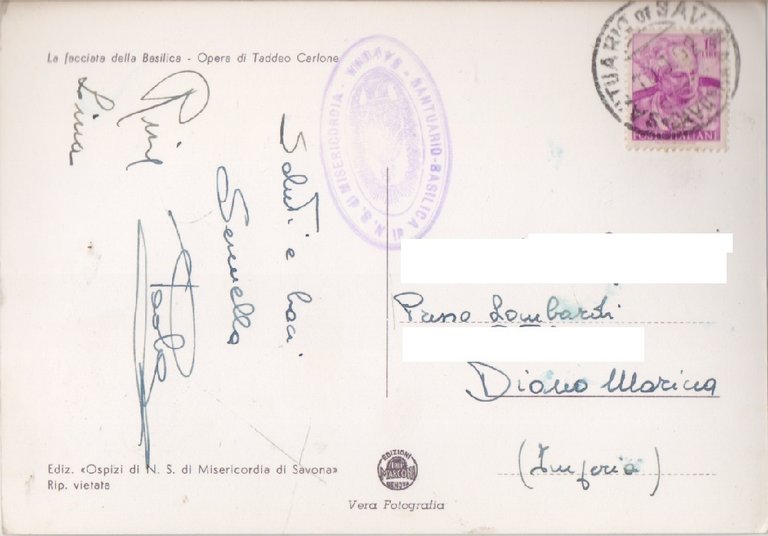 La facciata della Basilica - Opera di Taddeo Carlone
Pina
Lina
Saluti e baci
Serenella
Paola
SANTUARIO-BASILICA di N. S. di MISERICORDIA - SAVONA -
SANTUARIO DI SAVONA
15
LIRE
POSTE ITALIANE
Presso Lombardi
Diano Marina
(Imperia)
Ediz. «Ospizi di N. S. di Misericordia di Savona»
Rip. vietata
EDIZIONI
MARCONI
GENOVA
Vera Fotografia